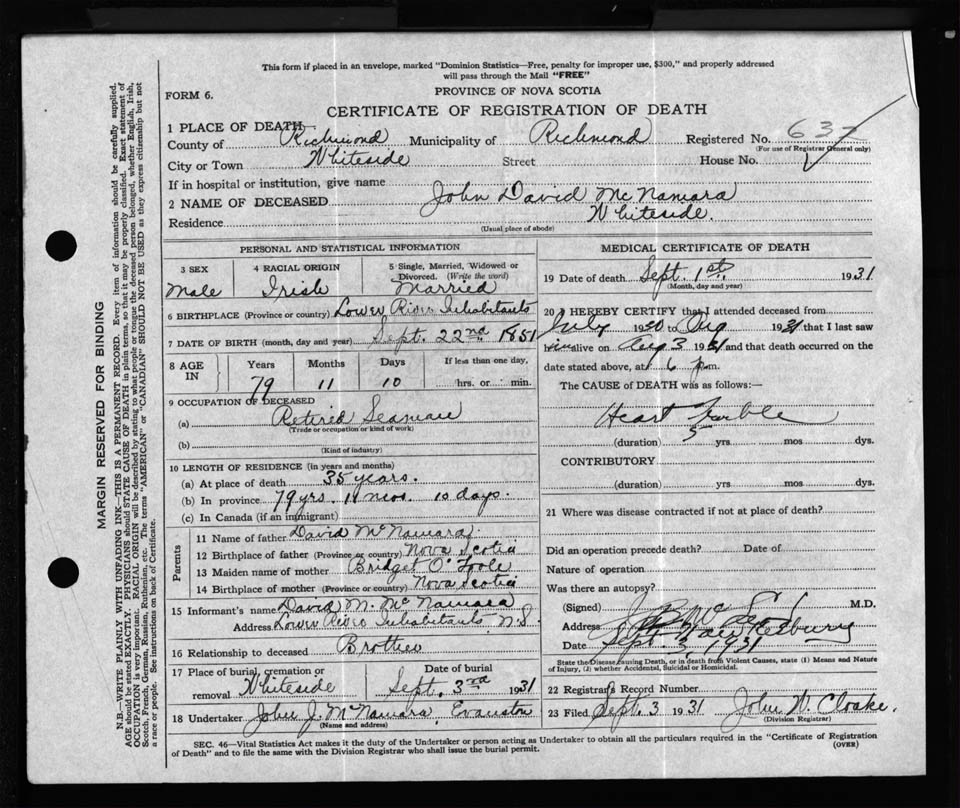 This form if placed in an envelope, marked "Dominion Statistics—Free, penalty for improper use, $300," and properly addressed
will pass through the Mail "FREE"
FORM 6.
PROVINCE OF NOVA SCOTIA
CERTIFICATE OF REGISTRATION OF DEATH
1 PLACE OF DEATH
County of Richmond Municipality of Richmond Registered No. 637
(For use of Registrar General only)
City or Town Whiteside Street House No.
If in hospital or institution, give name
2 NAME OF DECEASED John David McNamara
Residence Whiteside.
(Usual place of abode)
PERSONAL AND STATISTICAL INFORMATION
3 SEX 4 RACIAL ORIGIN 5 Single, Married, Widowed or
Divorced. (Write the word)
Male Irish Married
6 BIRTHPLACE (Province or country) Lower River Inhabitants
7 DATE OF BIRTH (month, day and year) Sept. 22nd 1851
8 AGE
IN
Years Months Days If less than one day,
79 11 10 hrs. or min.
9 OCCUPATION OF DECEASED
(a) Retired Seaman
(Trade or occupation or kind of work)
(b)
(Kind of industry)
10 LENGTH OF RESIDENCE (in years and months)
(a) At place of death 35 years.
(b) In province 79 yrs. 11 mos. 10 days.
(c) In Canada (if an immigrant)
Parents
11 Name of father David McNamara
12 Birthplace of father (Province or country) Nova Scotia
13 Maiden name of mother Bridget O'Toole
14 Birthplace of mother (Province or country) Nova Scotia
15 Informant's name David M. McNamara
Address Lower River Inhabitants N.S.
16 Relationship to deceased Brother
17 Place of burial, cremation or
removal Whiteside
Date of burial
Sept. 3rd 1931
18 Undertaker John J. McNamara, Evanston
(Name and address)
MEDICAL CERTIFICATE OF DEATH
19 Date of death Sept. 1st. 1931
(Month, day and year)
20 I HEREBY CERTIFY that I attended deceased from
July 1930 to Aug 1931 that I last saw
him alive on Aug 3 1931 and that death occurred on the
date stated above, at 6 p.m.
The CAUSE of DEATH was as follows:—
Heart Trouble
(duration) 5 yrs. mos dys.
CONTRIBUTORY
(duration) yrs. mos. dys.
21 Where was disease contracted if not at place of death?
Did an operation precede death? Date of
Nature of operation
Was there an autopsy?
(Signed) M.D.
Address Hawkesbury
Date Sept. 3, 1931
State the Disease causing Death, or in death from Violent Causes, state (1) Means and Nature
of Injury, (2) whether Accidental, Suicidal or Homicidal.
22 Registrar's Record Number
23 Filed Sept. 3 1931 John W. Cloake.
(Division Registrar)
SEC. 46—Vital Statistics Act makes it the duty of the Undertaker or person acting as Undertaker to obtain all the particulars required in the "Certificate of Registration
of Death" and to file the same with the Division Registrar who shall issue the burial permit.
(OVER)
MARGIN RESERVED FOR BINDING
N.B.—WRITE PLAINLY WITH UNFADING INK—THIS IS A PERMANENT RECORD. Every item of information should be carefully supplied.
AGE should be stated EXACTLY. PHYSICIANS should STATE CAUSE OF DEATH in plain terms, so that it may be properly classified. Exact statement of
OCCUPATION is very important. RACIAL ORIGIN will be described by stating to what people or tongue the deceased person belonged, whether English, Irish,
Scotch, French, German, Russian, Ruthenian, etc. The terms "AMERICAN" or "CANADIAN" SHOULD NOT BE USED as they express citizenship but not
a race or people. See instructions on back of Certificate.